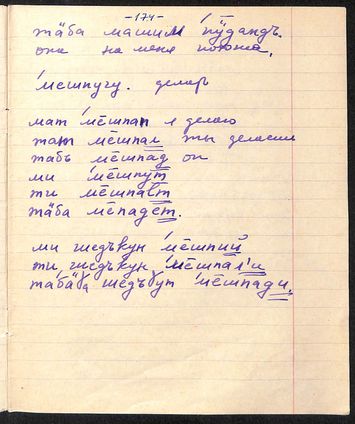 -174-
тӓба машим пӱдандъ.
она на меня похожа.
мешпугу. делать
мат мешпап я делаю
тат мёшпал ты делаешь
табъ мешпад он
ми мешпут
ти мешпалт
тӓба мёпадёт.
ми шедъкун мёшпий
ти шедъкун мёшпал'и
табӓга шедъгут мёшпади.